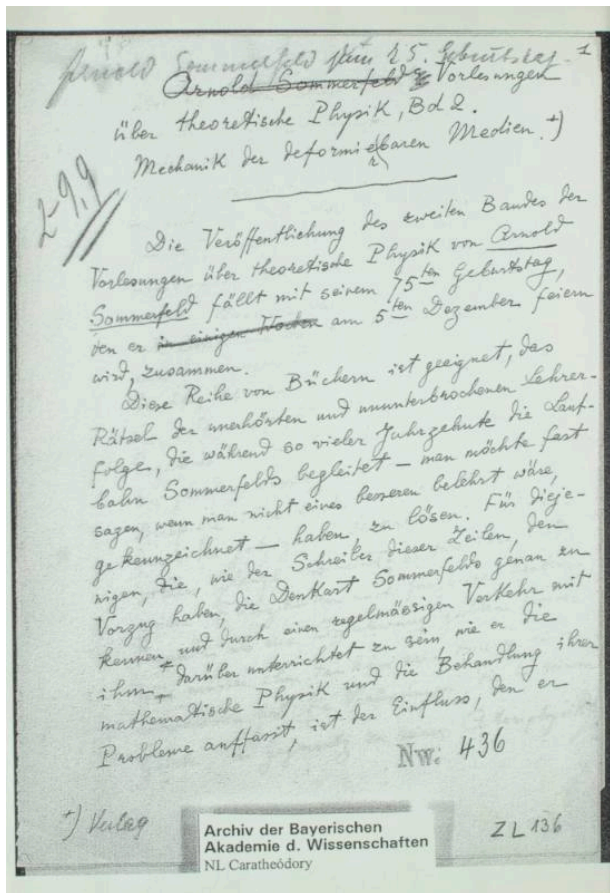 Arnold Sommerfeld zum 75. Geburtstag. 1
Arnold Sommerfelds Vorlesungen
über theoretische Physik, Bd 2.
Mechanik der deformierbaren Medien. +)
Die Veröffentlichung des zweiten Bandes der
Vorlesungen über theoretische Physik von Arnold
Sommerfeld fällt mit seinem 75ten Geburtstag,
den er in einigen Wochen am 5ten Dezember feiern
wird, zusammen.
Diese Reihe von Büchern ist geeignet, das
Rätsel der unerhörten und ununterbrochenen Lehrer-
folge, die während so vieler Jahrzehnte die Lauf-
bahn Sommerfelds begleitet – man möchte fast
sagen, wenn man nicht eines besseren belehrt wäre,
gekennzeichnet – haben, zu lösen. Für dieje-
nigen, die, wie der Schreiber dieser Zeilen, den
Vorzug haben, die Denkart Sommerfelds genau zu
kennen und durch einen regelmässigen Verkehr mit
ihm darüber unterrichtet zu sein, wie er die
mathematische Physik und die Behandlung ihrer
Probleme auffasst, ist der Einfluss, den er
Nw. 436
+) Verlag
Archiv der Bayerischen
Akademie d. Wissenschaften
NL Caratheódory
ZL 136